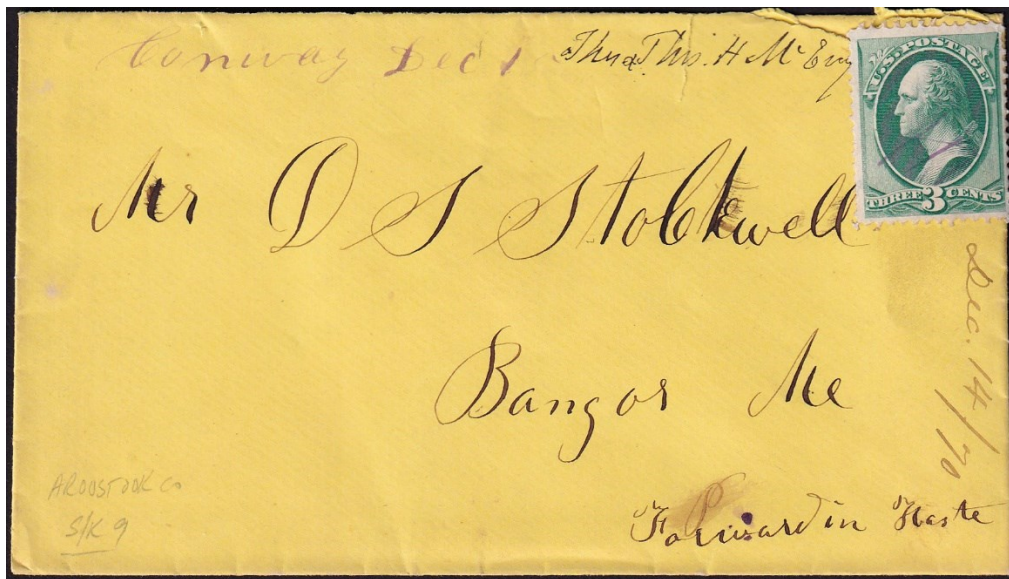 Conway Dec 1
Thos. H Mc
U.S. POSTAGE
THREE 3 CENTS
Mr D S Stockwell
Bangor Me
Dec. 14/70
Forward in Haste
AROOSTOOK Co
S/K 9